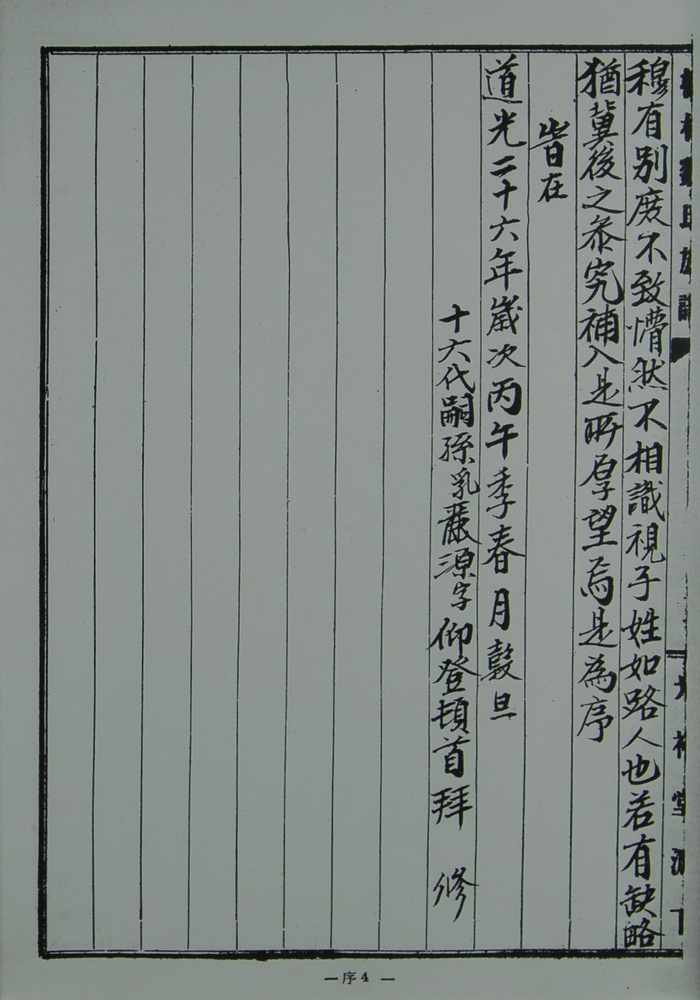 穆有别庶不致懵然不相識視子姓如路人也若有缺略
猶冀後之叅究補入是所厚望焉是為序
峕在
道光二十六年歲次丙午季春月穀旦
十六代嗣孫乳巖源字仰登頓首拜 修
—序4—